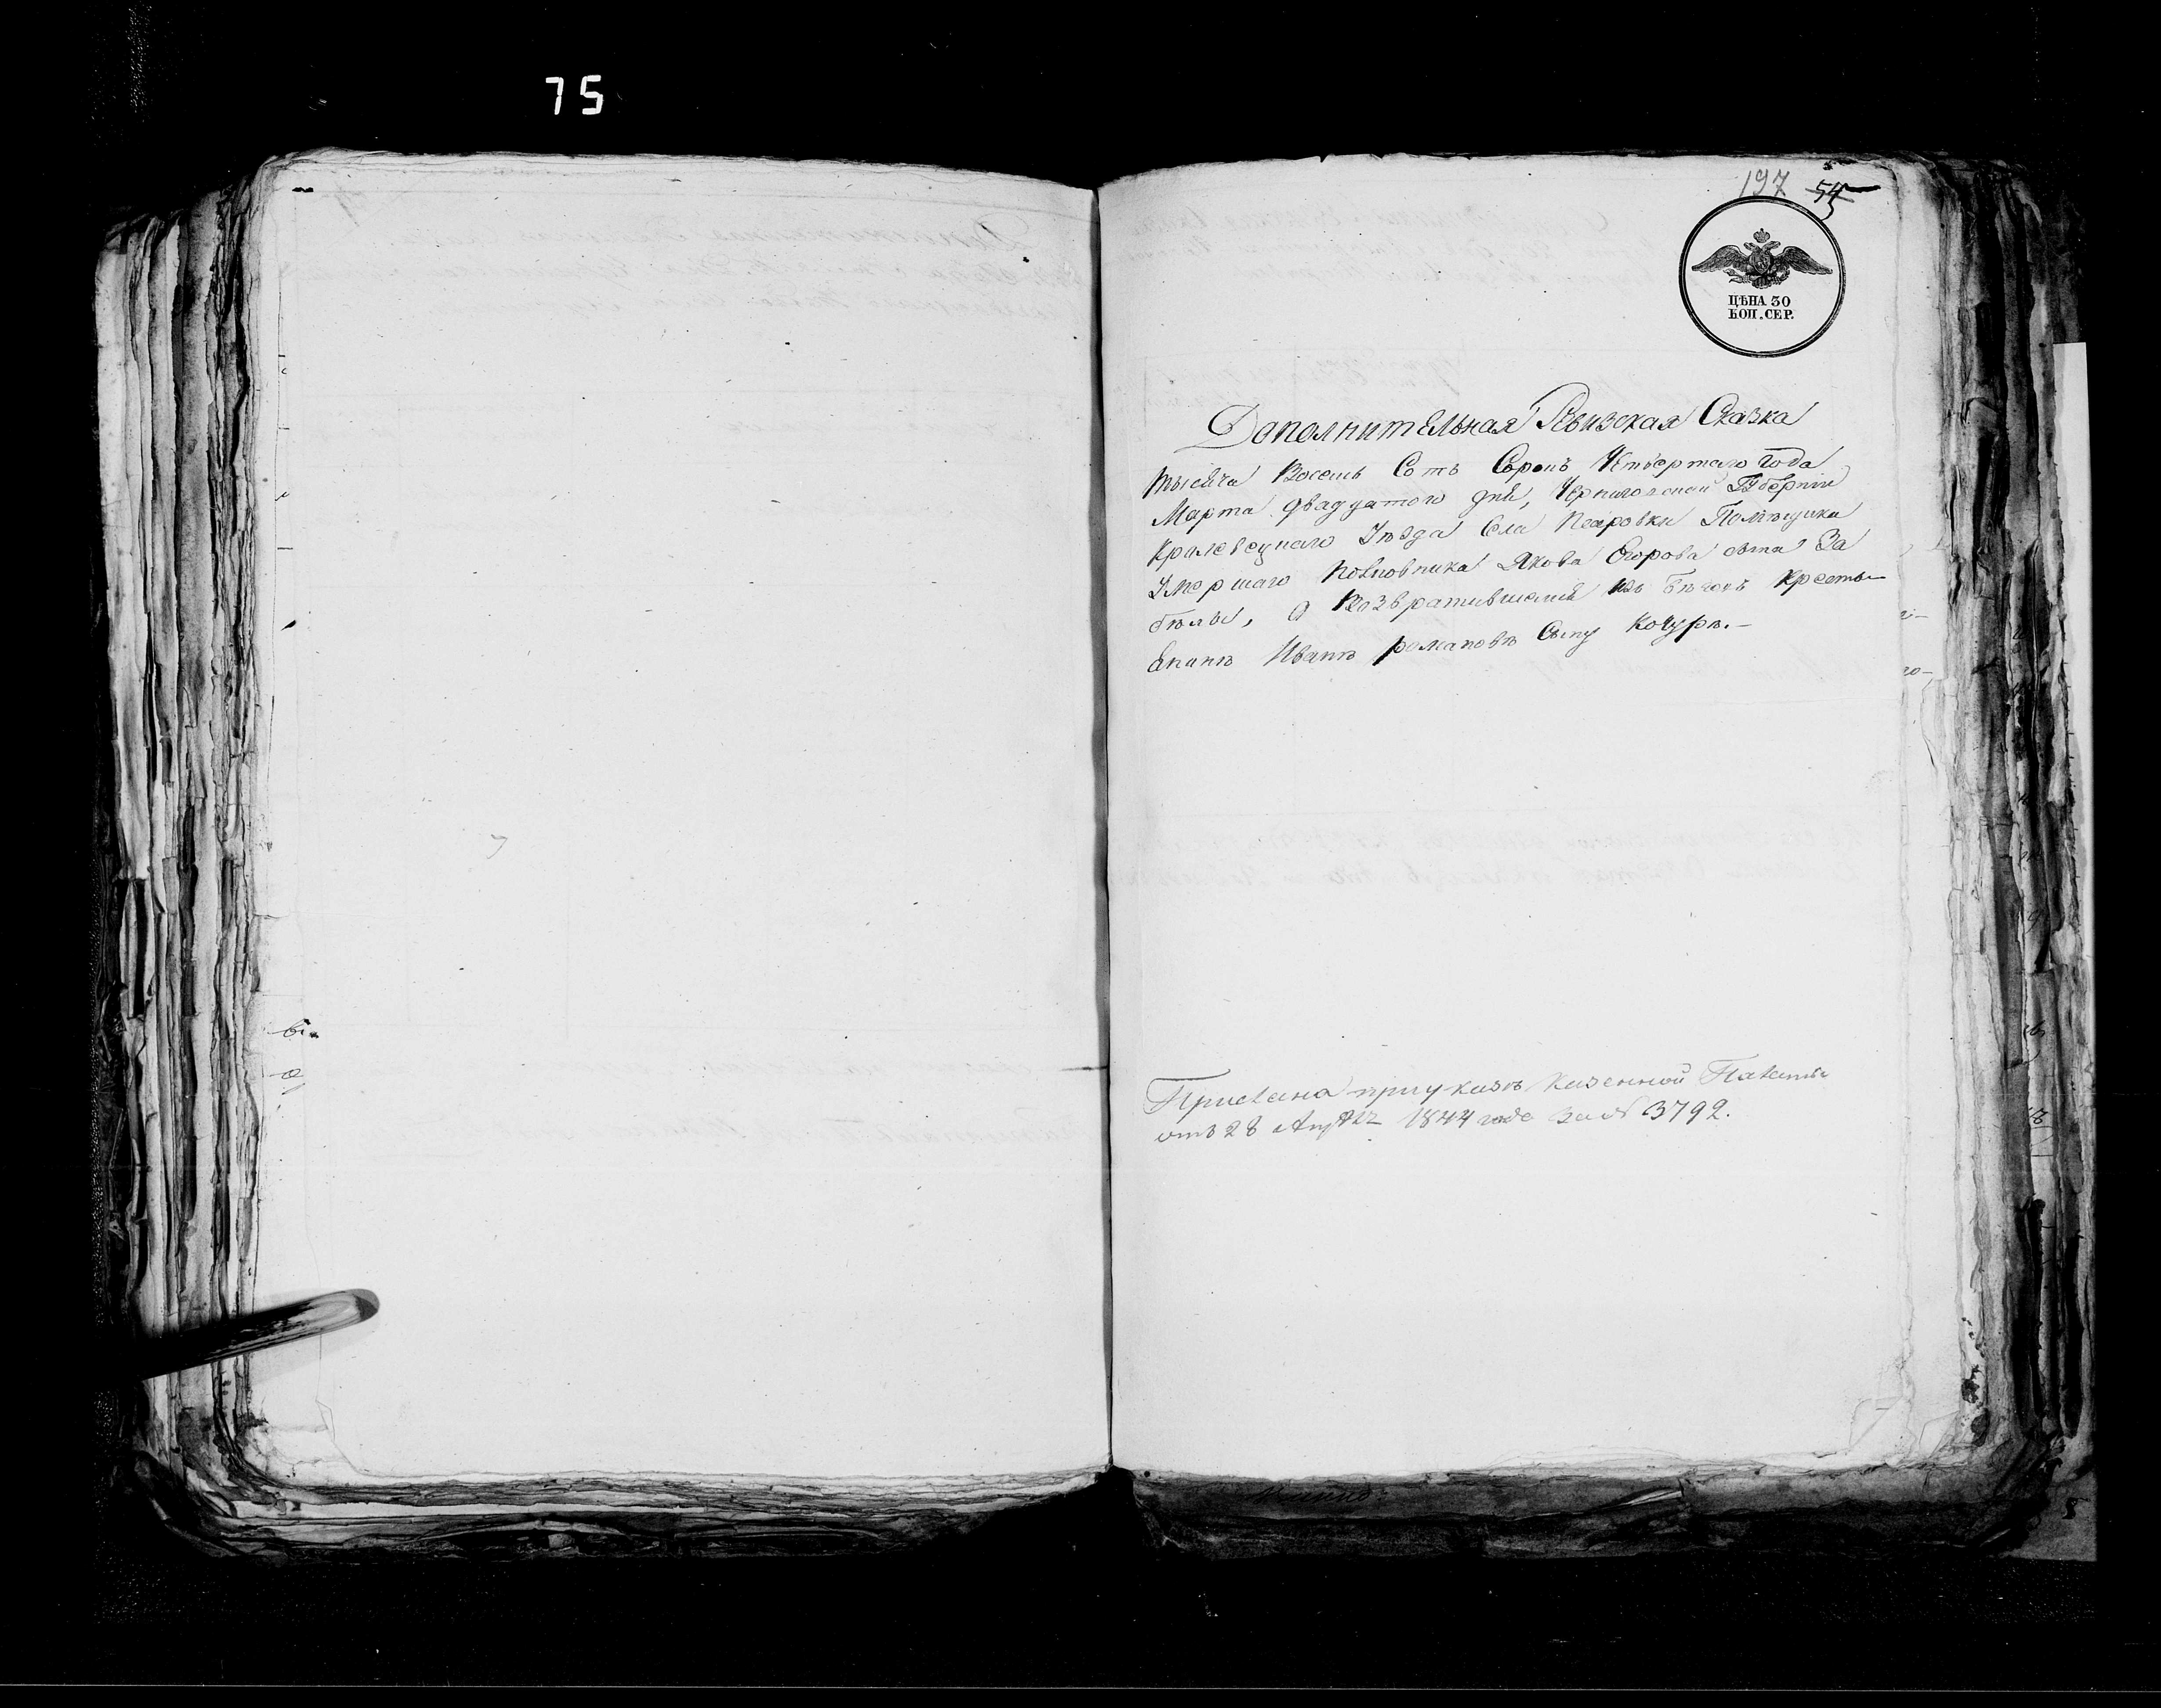 75
197 54
ЦѢНА 30
КОП. СЕР.
Дополнительная Ревизская Сказка
тысяча Восемь Сотъ Сорокъ Четвертаго года
Марта двадцатого дня, Черниговской Губерніи
Кролевецкаго Уезда Села Помѣщика
Умершаго Полковника Якова Егорова сына За
бѣлы, О Возвратившемся изъ бѣговъ Кресть-
Енинѣ Иванѣ романовѣ Сыну Кочурѣ.-
Прислана при указѣ Казенной Палаты
отъ 28 1844 года за № 3792.